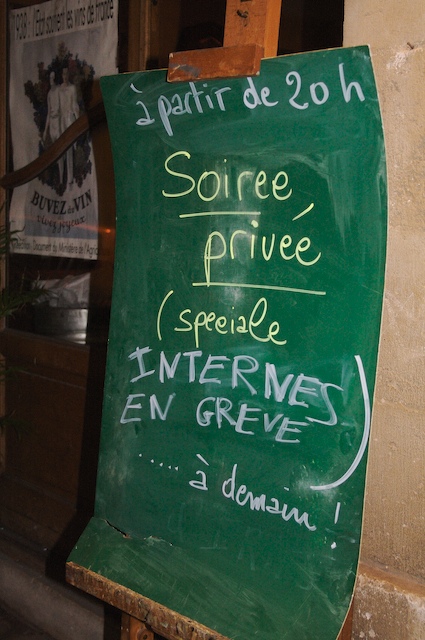 1938 : l'État soutient les vins de France
BUVEZ du VIN
vivez joyeux
à partir de 20h
Soiree
privée
(speciale
INTERNES
EN GREVE)
..... à demain !